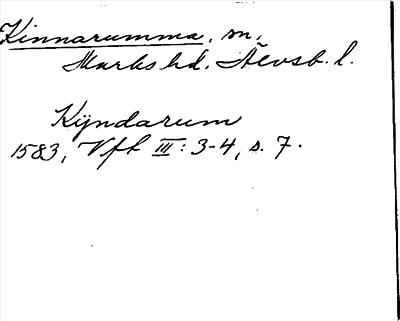 Kinnarumma, sn,
Marks hd. Älvsb. l.
Kÿndarum
1583, Vfl III: 3-4, s. 7.